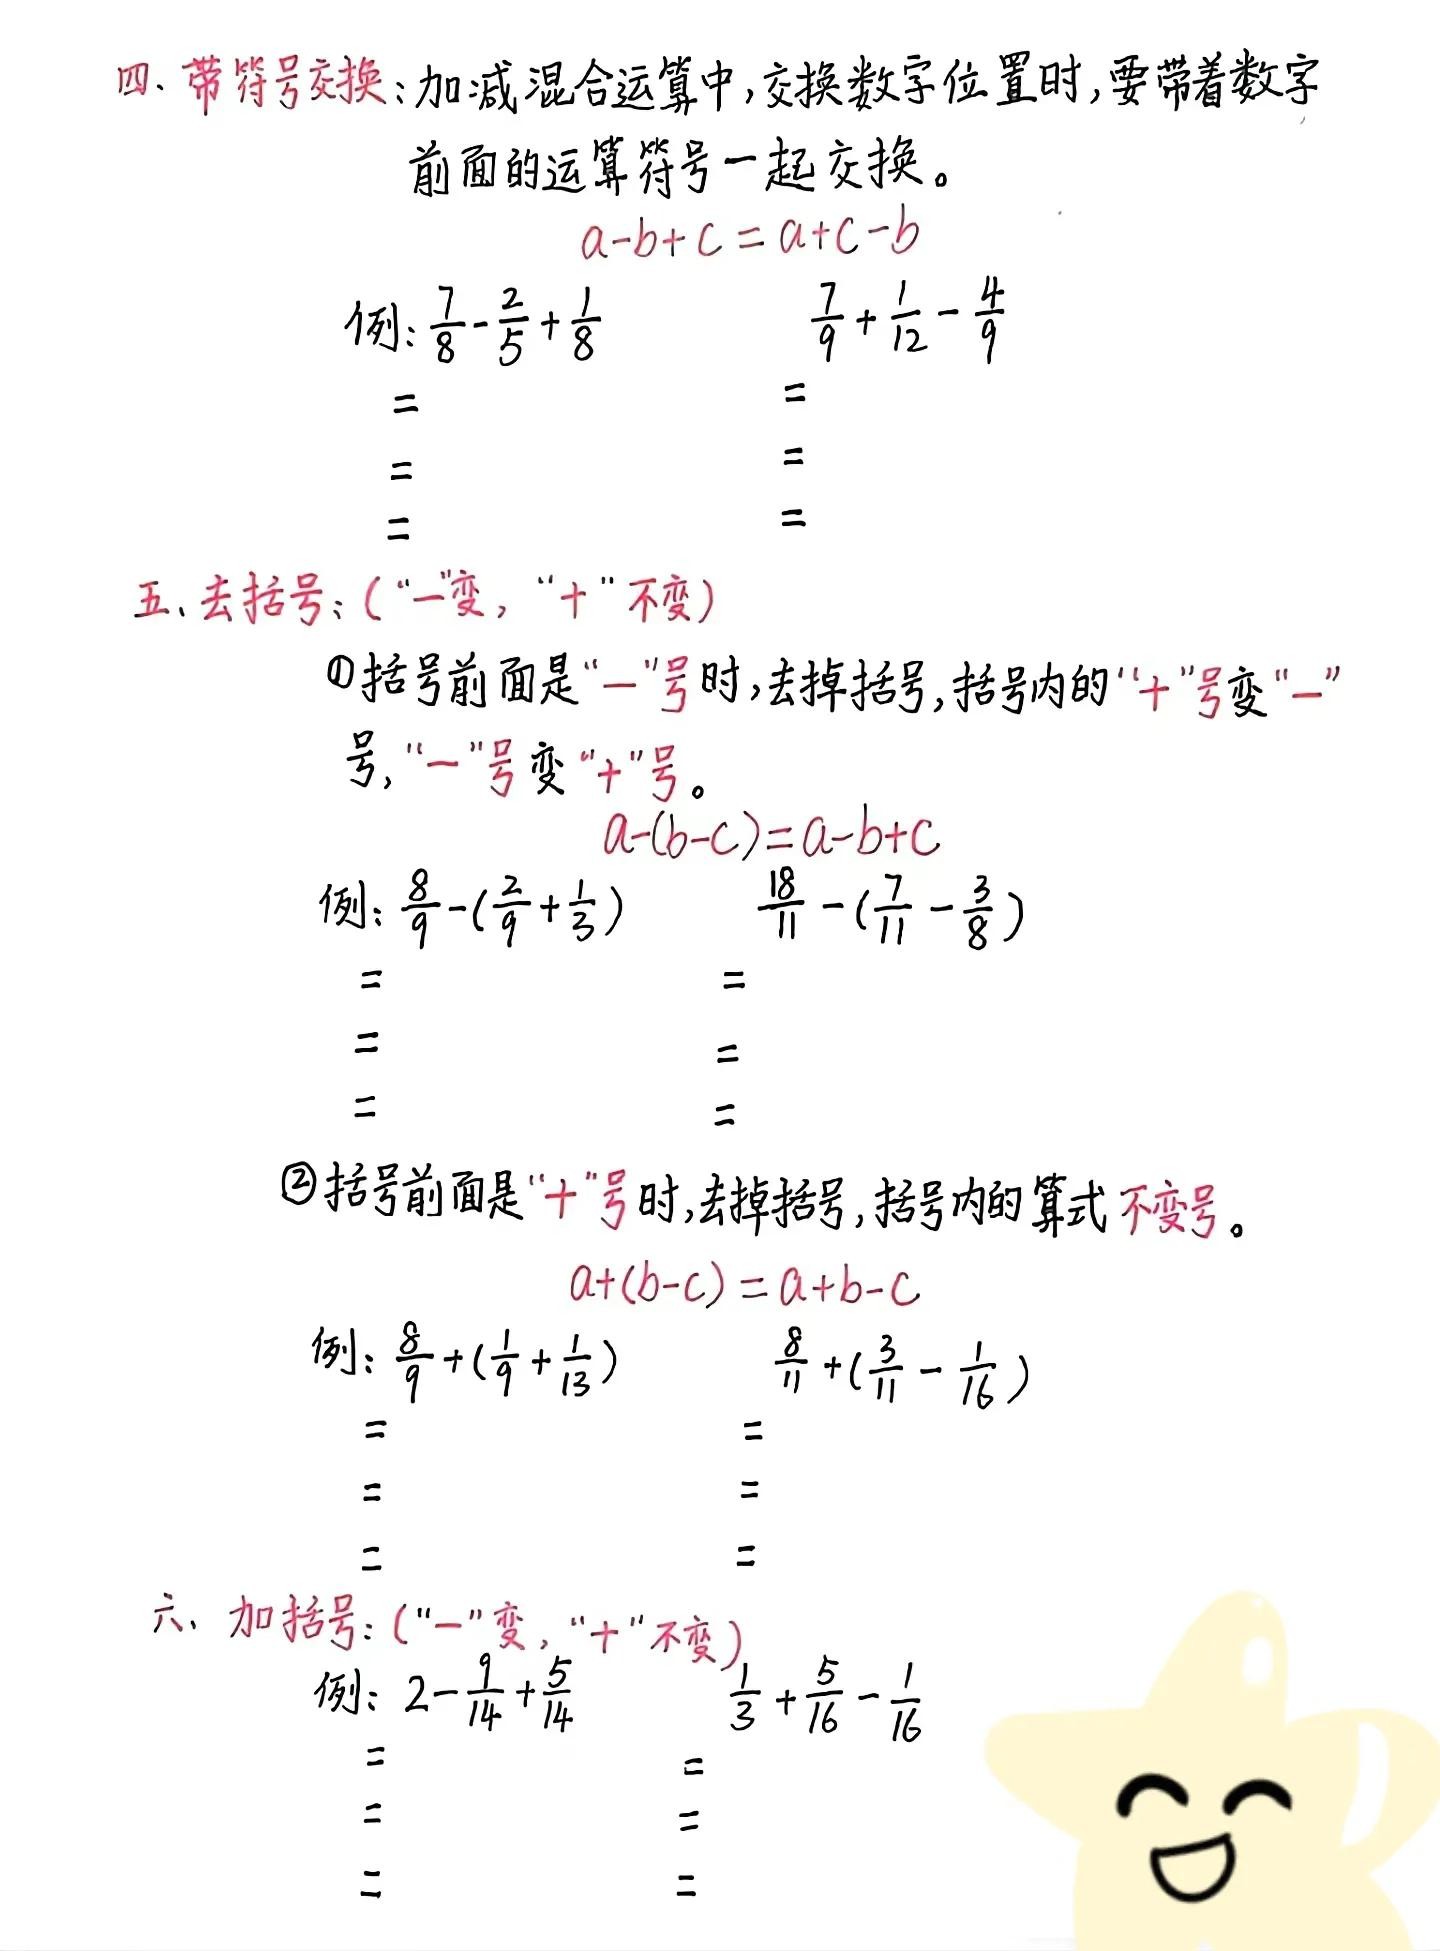 四、带符号交换:加减混合运算中,交换数字位置时,要带着数字
前面的运算符号一起交换。
a-b+c=a+c-b
例: 7/8 - 2/5 + 1/8    7/9 + 1/12 - 4/9
=    =
=    =
=    =
五、去括号:(“一”变,“十”不变)
①括号前面是“一”号时,去掉括号,括号内的“十”号变“一”
号,“一”号变“+”号。
a-(b-c)=a-b+c
例: 8/9 - (2/9 + 1/3)    18/11 - (7/11 - 3/8)
=    =
=    =
=    =
②括号前面是“十”号时,去掉括号,括号内的算式不变号。
a+(b-c)=a+b-c
例: 8/9 + (1/9 + 1/13)    8/11 + (3/11 - 1/16)
=    =
=    =
=    =
六、加括号:(“一”变,“十”不变)
例: 2 - 9/14 + 5/14    1/3 + 5/16 - 1/16
=    =
=    =
=    =